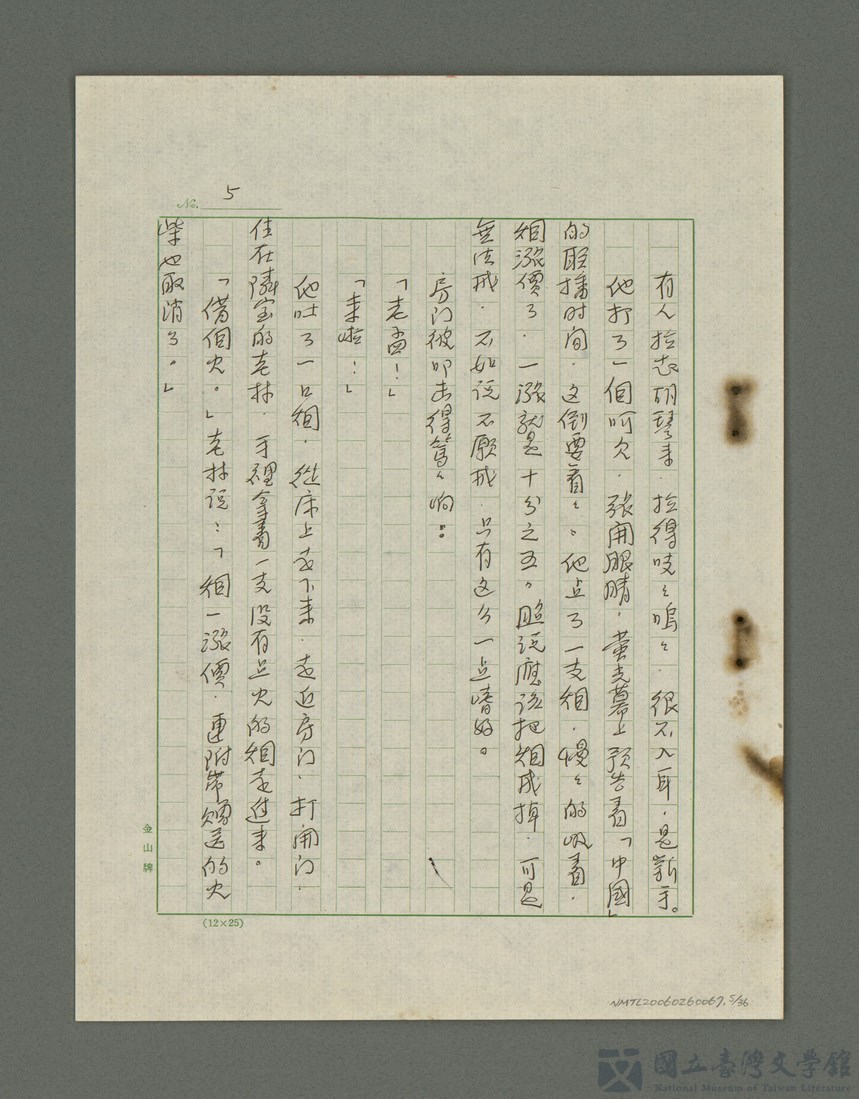 No. 5
有人拉起胡琴来．拉得吱々嗚々．很不入耳．是新手。
他打了一個呵欠．張開眼睛．萤光幕上預告着「中國」
的联播时间．这倒要看々。他点了一支烟．慢々的吸着．
烟漲價了．一漲就是十分之五。照説應該把烟戒掉．可是
無法戒．不如说不願戒．只有这么一点嗜好。
房门被叩击得篤々响。
「老孟！」
「来啦！」
他吐了一口烟．從床上走下来．走近房门．打開门．
住在隣室的老林．手裡拿着一支没有点火的烟走进来。
「借個火。」老林説：「烟一漲價．連附帶赠送的火
柴也取消了。」
金山牌
(12×25)
NMTL20060260067, 5/36
國立臺灣文學館
National Museum of Taiwan Literature